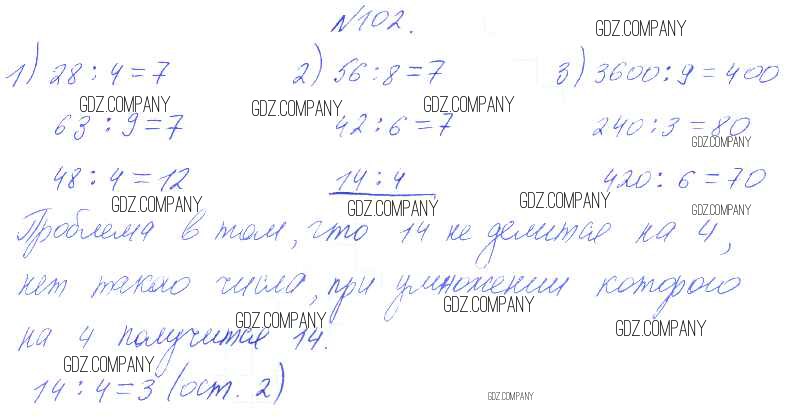 №102.
GDZ.COMPANY
1) 28 : 4 = 7 2) 56 : 8 = 7 3) 3600 : 9 = 400
GDZ.COMPANY GDZ.COMPANY GDZ.COMPANY
63 : 9 = 7 42 : 6 = 7 240 : 3 = 80
GDZ.COMPANY
48 : 4 = 12 14 : 4 420 : 6 = 70
GDZ.COMPANY GDZ.COMPANY GDZ.COMPANY GDZ.COMPANY
Проблема в том, что 14 не делится на 4,
нет такого числа, при умножении которого
GDZ.COMPANY GDZ.COMPANY GDZ.COMPANY
на 4 получится 14.
GDZ.COMPANY
14 : 4 = 3 (ост. 2)
GDZ.COMPANY